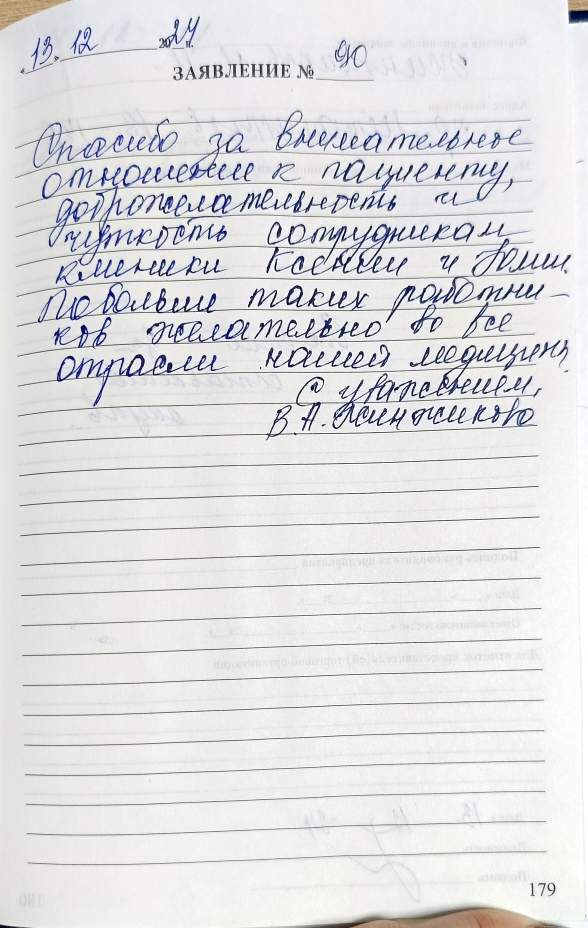 13. 12 2024 г.
ЗАЯВЛЕНИЕ № 90
Спасибо за внимательное
отношение к пациенту,
доброжелательность и
чуткость сотрудникам
клиники Ксении и Юлии.
Побольше таких работни-
ков желательно во все
отрасли нашей медицины.
С уважением,
В.А. Жинжикова
179